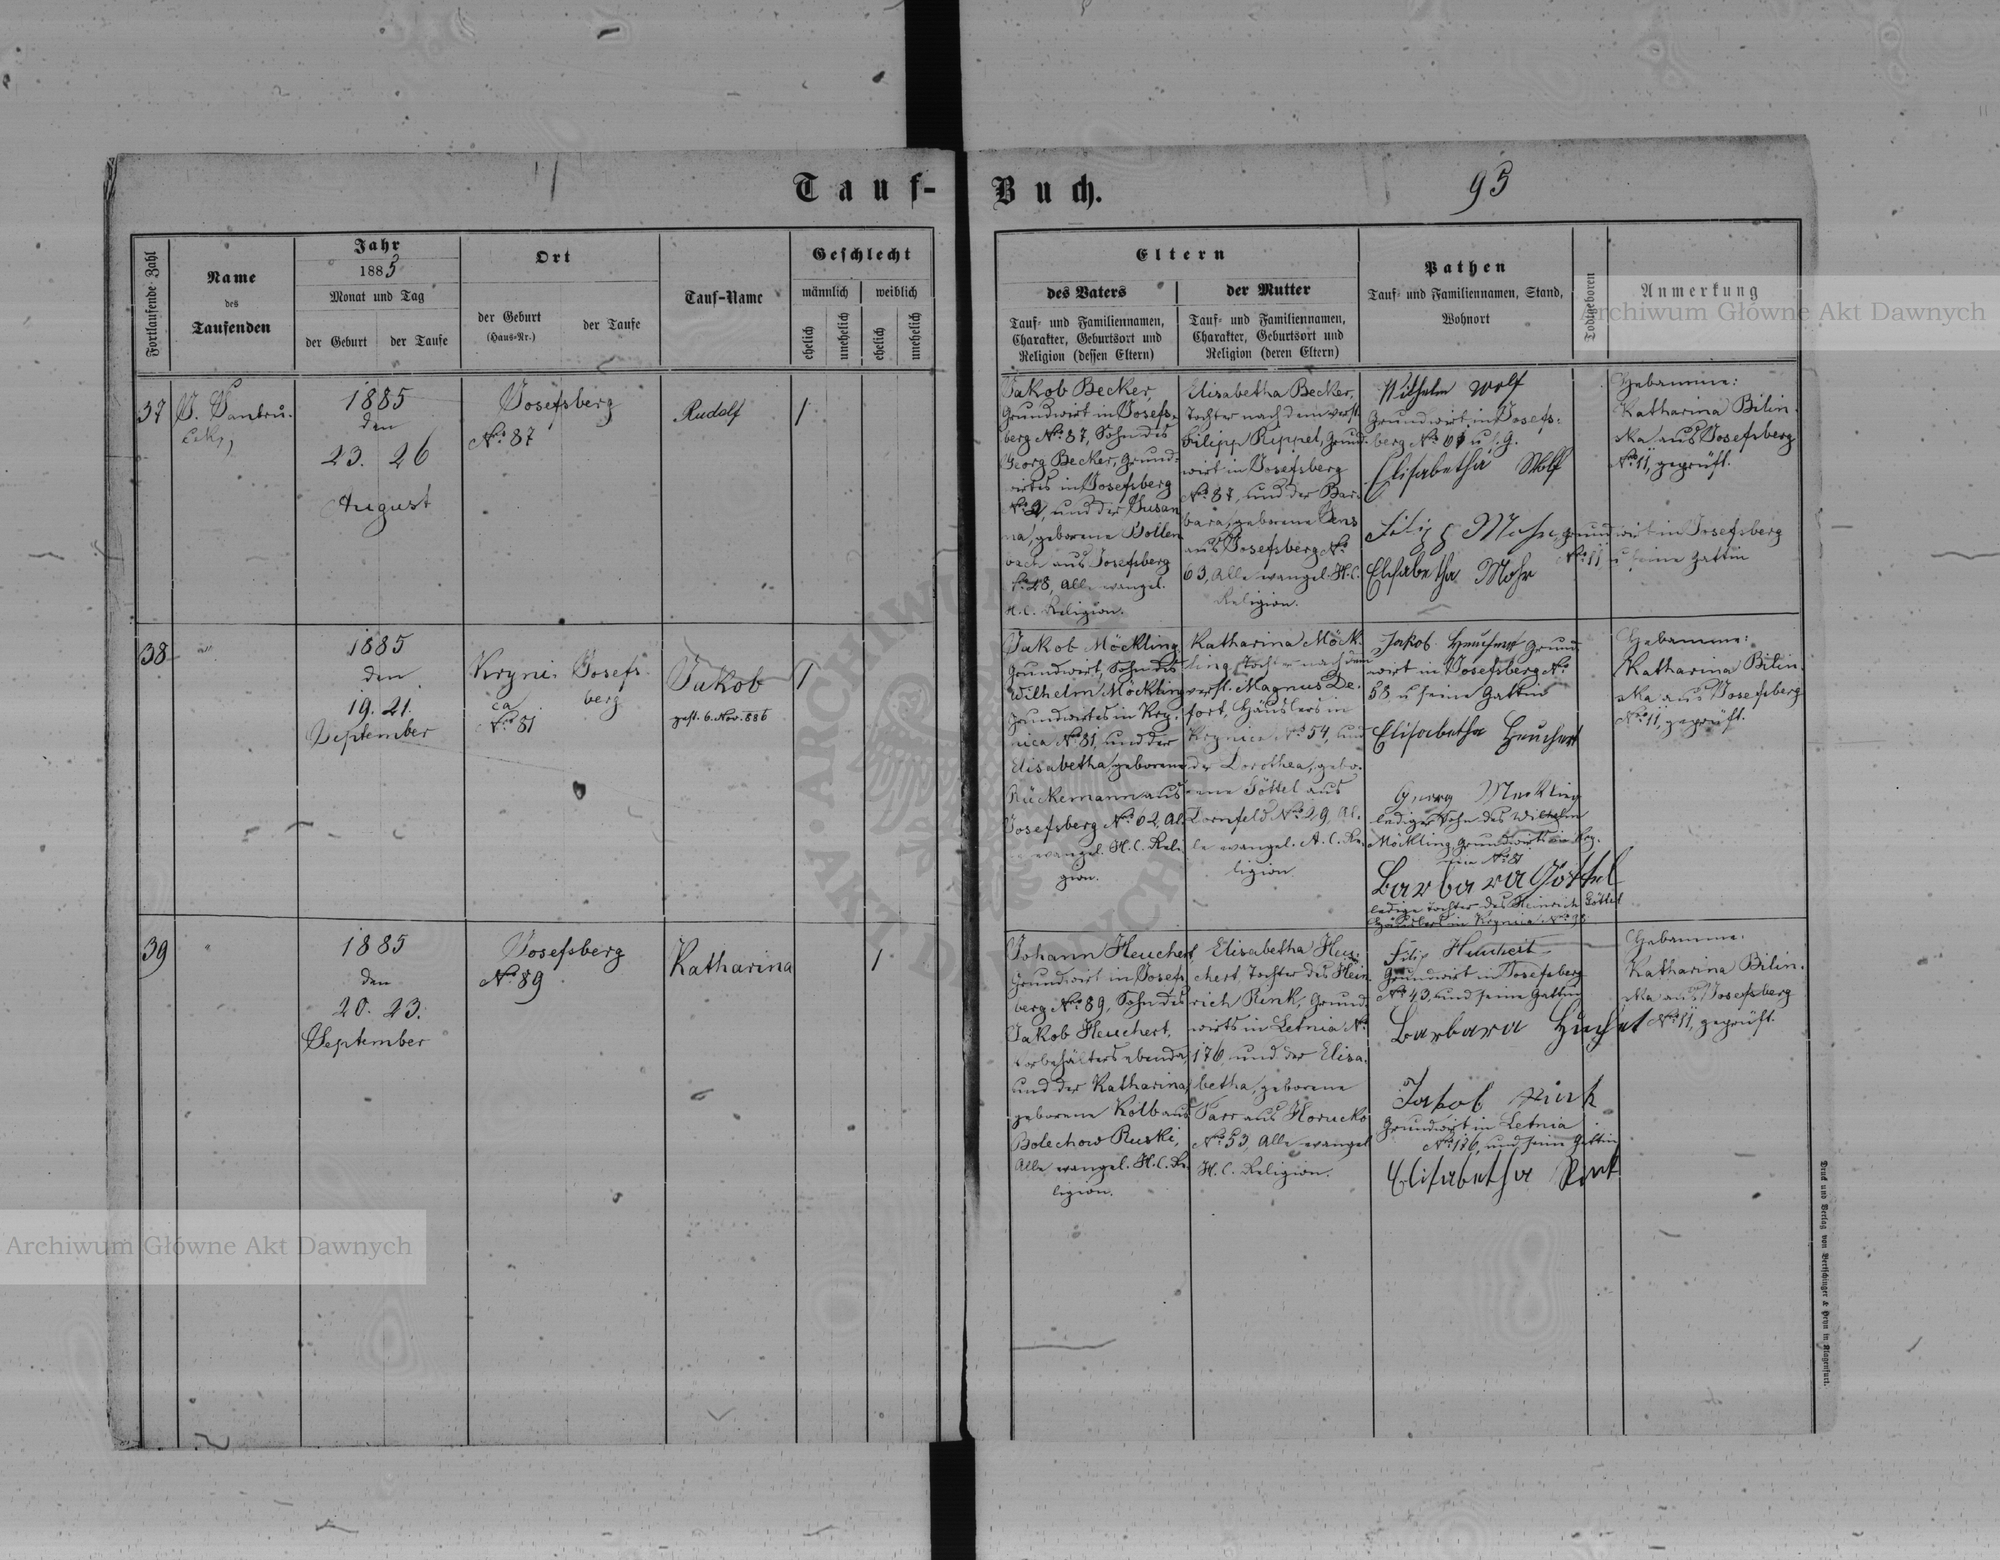 Tauf-Buch.
95
Fortlaufende Zahl
Name
des
Taufenden
Jahr
1885
Monat und Tag
der Geburt
der Taufe
Ort
der Geburt
(Haus-Nr.)
der Taufe
Tauf-Name
Geschlecht
männlich
weiblich
ehelich
unehelich
ehelich
unehelich
Eltern
des Vaters
Tauf- und Familiennamen,
Charakter, Geburtsort und
Religion (dessen Eltern)
der Mutter
Tauf- und Familiennamen,
Charakter, Geburtsort und
Religion (deren Eltern)
Pathen
Tauf- und Familiennamen, Stand,
Wohnort
Todtgeboren
Anmerkung
Archiwum Główne Akt Dawnych
37
1885
den
23. 26
August
Josefsberg
No. 87
Rudolf
1
Jakob Becker,
Grundwirt in Josefs-
berg No. 87, Sohn des
Georg Becker, Grund-
wirtes in Josefsberg
und der Susan
na, geborene Bollen
bach aus Josefsberg
Alle evangel.
H. C. Religion.
Elisabetha Becker,
Tochter nach dem verst.
Filipp Rippel, Grund-
wirt in Josefsberg
No. 87, und der Bar-
bara, geborene
aus Josefsberg No.
63, Alle evangel. H. C.
Religion.
Wilhelm Wolf
Grundwirt in Josefs-
berg No.
Elisabetha Wolf
Filipp Mohr, Grundwirt in Josefsberg
No. 11 u seine Gattin
Elisabetha Mohr
Gebamme:
Katharina Bilin-
ska aus Josefsberg
No. 11, geprüft.
38
1885
den
19. 21.
September
Kryni-
ca
No. 81
Josefs-
berg
Jakob
gest. 6. Nov. 886
1
Jakob Möckling
Grundwirt, Sohn des
Wilhelm Möckling
Grundwirtes in Kry-
nica No. 81, und der
Elisabetha, geborene
Rückemann aus
Josefsberg No. 62, Al-
le evangel. H. C. Reli-
gion.
Katharina Möck-
ling, Tochter nach dem
verst. Magnus De-
fort, Häuslers in
Krynica No. 54, und
der Dorothea, gebo-
rene Göttel aus
Dornfeld No. 29, Al-
le evangel. A. C. Re-
ligion
Jakob Heuchert Grund-
wirt in Josefsberg No.
58, u seine Gattin
Elisabetha Heuchert
Georg Möckling
lediger Sohn des Wilhelm
Möckling, Grundwirts in Kry-
nica No. 81
Barbara Göttel
ledige Tochter des Heinrich Göttel
Häuslers in Krynica
Gebamme:
Katharina Bilin-
ska aus Josefsberg
No. 11, geprüft.
39
1885
den
20. 23.
September
Josefsberg
No. 89
Katharina
1
Johann Heuchert
Grundwirt in Josefs-
berg No. 89, Sohn des
Jakob Heuchert,
Vorbehälters ebenda,
und der Katharina,
geborene Kolb aus
Bolechow Ruski,
Alle evangel. H. C. Re-
ligion.
Elisabetha Heu-
chert, Tochter des Hein-
rich Rink, Grund-
wirts in Letnia No.
176, und der Elisa-
betha, geborene
Parr aus Horucko
No. 53, Alle evangel
H. C. Religion.
Filip Heuchert
Grundwirt in Josefsberg
No. 43, und seine Gattin
Barbara Heuchet
Jakob Rink
Grundwirt in Letnia
No. 176, und seine Gattin
Elisabetha Rink
Gebamme.
Katharina Bilin-
ska aus Josefsberg
No. 11, geprüft.
Druck und Verlag von Bertschinger & Heyn in Klagenfurt.
Archiwum Główne Akt Dawnych